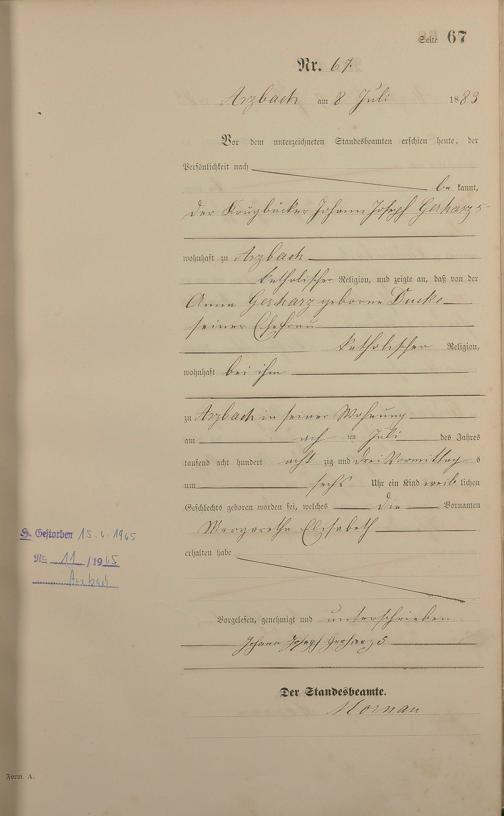 Seite 67
Nr. 67.
Arzbach am 8 Juli 1883
Vor dem unterzeichneten Standesbeamten erschien heute, der
Persönlichkeit nach
be kannt,
der Krugbäcker Johann Joseph Gerharz 5
wohnhaft zu Arzbach
katholischer Religion, und zeigte an, daß von der
Anna Gerharz geborne
seiner Ehefrau
katholischer Religion,
wohnhaft bei ihm
zu Arzbach in seiner Wohnung
am acht Juli des Jahres
tausend acht hundert acht zig und drei Vormittag s
um sechs Uhr ein Kind weib lichen
Geschlechts geboren worden sei, welches die Vornamen
Margaretha Elisabeth
erhalten habe
Vorgelesen, genehmigt und unterschrieben
Johann Joseph Gerharz 5
Der Standesbeamte.
Gestorben 15.4.1965
No 11 /1965
Arzbach
Form. A.